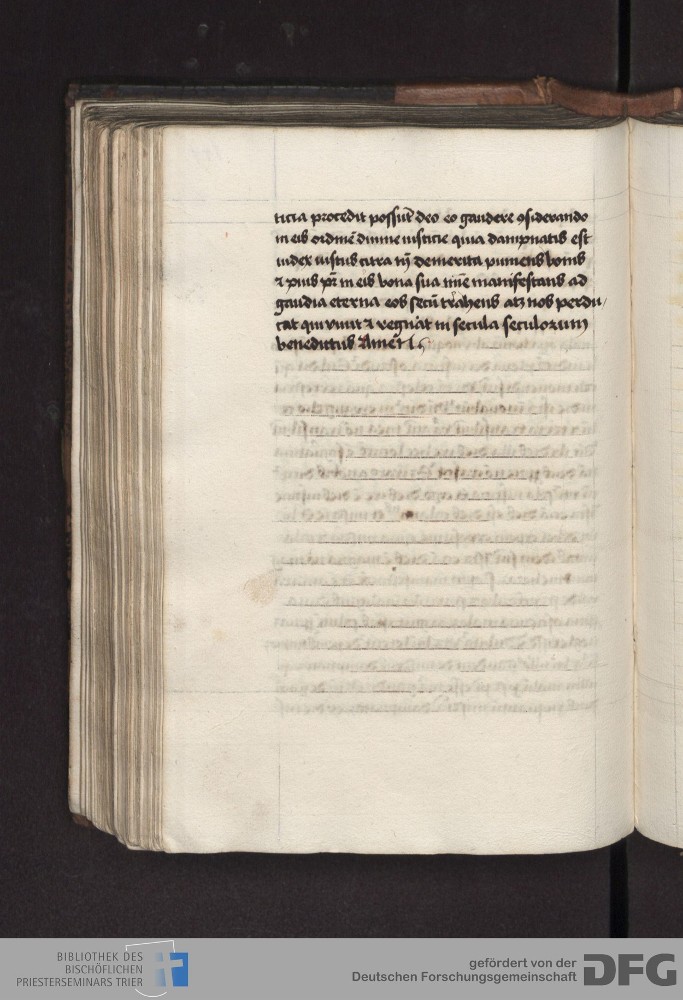 ticia procedit possūt deo eo gaudere ꝯsiderando
in eis ordinē diuine iusticie quia dampnatis est
iudex iustus citra tn̄ demerita puniens bonis
⁊ pius pr̄ in eis bona sua manifestans ad
gaudia eterna eos secū trahens atqꝫ nos perdu/
cat qui viuit ⁊ regnat in secula seculorum
benedictus Amē
BIBLIOTHEK DES
BISCHÖFLICHEN
PRIESTERSEMINARS TRIER
gefördert von der
Deutschen Forschungsgemeinschaft DFG